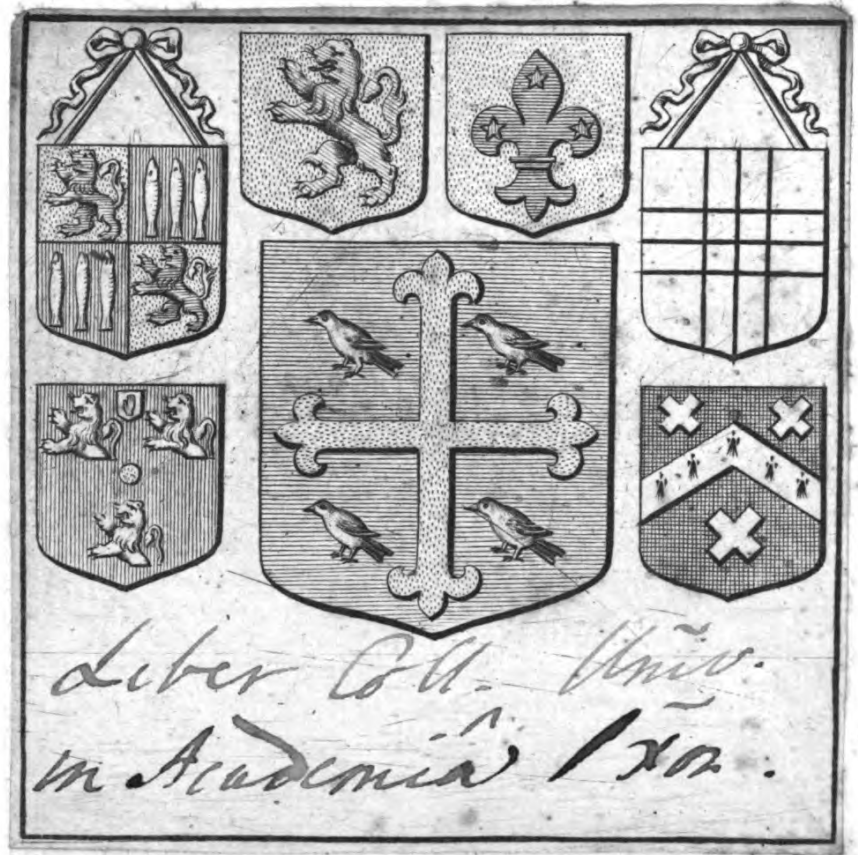 Liber Coll. Univ.
in Academiâ Oxon.